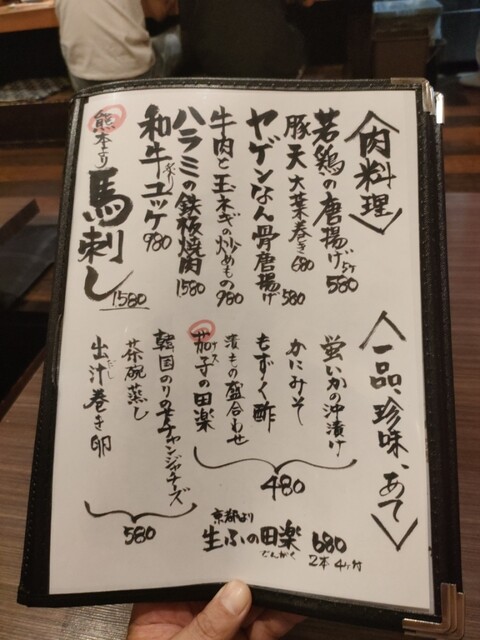 〈肉料理〉
若鶏の唐揚げ5ヶ 580
豚天大葉巻き 680
ヤゲンなん骨唐揚げ 580
牛肉と玉ネギの炒めもの 980
ハラミの鉄板焼肉 1580
和牛炙りユッケ 980
熊本より 馬刺し 1580
〈一品、珍味、あて〉
蛍いかの沖漬け
かにみそ
もずく酢
漬もの盛合わせ
茄子の田楽
ナス
480
韓国のりのチャンジャチーズ
茶碗蒸し
出汁巻き卵
だし
580
京都より
生ふの田楽 680
でんがく
2本4ヶ付